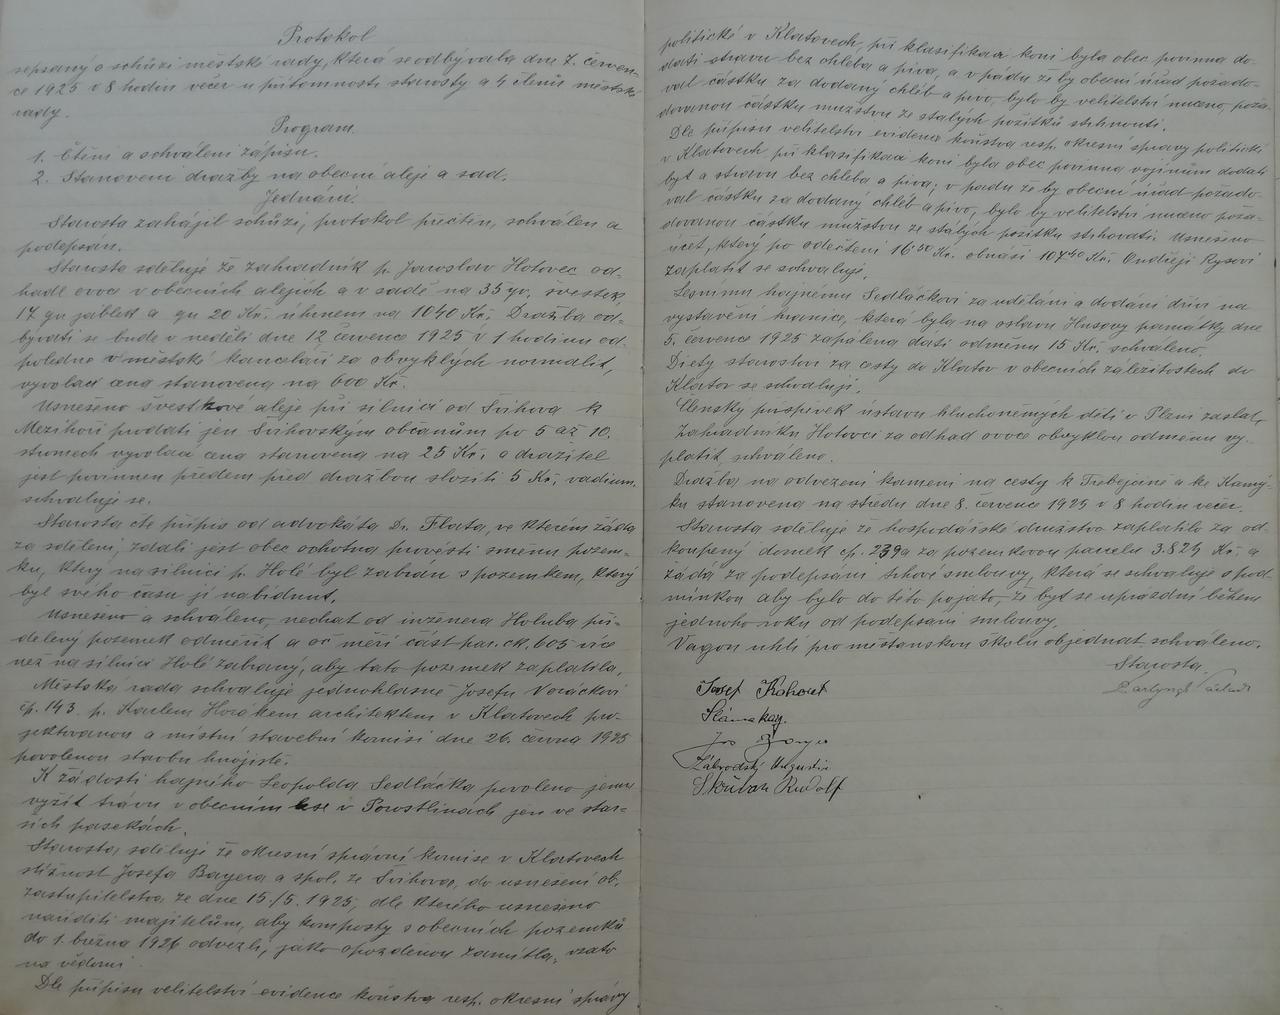 Protokol
sepsaný o schůzi městské rady, která se odbývala dne 7. červen-
ce 1925 v 8 hodin večer u přítomnosti starosty a 4 členů městské
rady.
Program.
1. Čtení a schválení zápisu.
2. Stanovení dražby na obecní aleje a sad.
Jednání.
Starosta zahájil schůzi, protokol přečten, schválen a
podepsán.
Starosta sděluje že zahradník p. Jaroslav Hotovec od-
hadl ovoce v obecních alejích a v sadě na 35 gv. švestek,
17 gv jablek a gv 20 Kč. úhrnem na 1040 Kč. Dražba od-
bývati se bude v neděli dne 12 července 1925 v 1 hodinu od-
poledne v městské kanceláři za obvyklých normalit,
vyvolací cena stanovena na 600 Kč.
Usnešeno švestkové aleje při silnici od Švihova k
Mezihoří prodati jen Švihovským občanům po 5 až 10.
stromech vyvolací cena stanovena na 25 Kč. a dražitel
jest povinnen předem před dražbou složiti 5 Kč. vadium.
schvaluje se.
Starosta čte přípis od advokáta Dr. Flata, ve kterém žádá
za sdělení, zdali jest obec ochotna provésti směnu pozem-
ku, který na silnici p. Holé byl zabrán s pozemkem, který
byl svého času jí nabídnut.
Usnešeno a schváleno, nechat od inženera Holuba při-
dělený pozemek odměřit a oč měří část par. čk. 605 více
než na silnici Holé zabraný, aby tato pozemek zaplatila.
Městská rada schvaluje jednohlasně Josefu Voráčkovi
čp. 143 p. Karlem Horákem architektem v Klatovech pro-
jektovanou a místní stavební komisí dne 26. června 1925
povolenou stavbu hnojiště.
K žádosti hajného Leopolda Sedláčka povoleno jemu
vyžít trávu v obecním lese v Porostlinách jen ve star-
ších pasekách.
Starosta sděluje že okresní správní komise v Klatovech
stížnost Josefa Bayera a spol. ze Švihova, do usnešení ob.
zastupitelstva ze dne 15./5. 1925, dle kterého usnešeno
naříditi majitelům, aby komposty s obecních pozemků
do 1. března 1926 odvezli, jako opozděnou zamítla, vzato
na vědomí.
Dle přípisu velitelství evidence koňstva resp. okresní správy
politické v Klatovech, při klasifikaci koní byla obec povinna do-
dati stravu bez chleba a piva, a v pádu že by obecní úřad požado-
val částku za dodaný chléb a pivo, bylo by velitelství nuceno, poža-
dovanou částku mužstvu ze stálých požitků strhnouti.
Dle přípisu velitelství evidence koňstva resp. okresní správy politické
v Klatovech při klasifikaci koní byla obec povinna vojínům dodati
byt a stravu bez chleba a piva; v pádu že by obecní úřad požado-
val částku za dodaný chléb a pivo, bylo by velitelství nuceno poža-
dovanou částku mužstvu ze stálých požitků strhovati. Usnešeno
účet, který po odečtení 16.50 Kč. obnáší 107.40 Kč. Ondřeji Rysovi
zaplatit se schvaluje.
Lesnímu hajnému Sedláčkovi za udělání a dodání dříví na
vystavení hranice, která byla na oslavu Husovy památky dne
5. července 1925 zapálena dáti odměnu 15 Kč. schváleno.
Diety starostovi za cesty do Klatov v obecních záležitostech do
Klatov se schvalují.
Členský příspěvek ústavu hluchoněmých dětí v Plzni zaslat,
Zahradníku Hotovci za odhad ovoce obvyklou odměnu vy-
platit, schváleno.
Dražba na odvezení kamení na cesty k Třebejčině a ke Kamý-
ku stanovena na středu dne 8. července 1925 v 8 hodin večer.
Starosta sděluje že hospodářské družstvo zaplatilo za od-
koupený domek čp. 239 a za pozemkovou parcelu 3.825 Kč. a
žádá za podepsání trhové smlouvy, která se schvaluje s pod-
mínkou aby bylo do této pojato, že byt se uprázdní během
jednoho roku od podepsání smlouvy.
Vagon uhlí pro měšťanskou školu objednat schváleno.
Starosta
Josef Kohout
Sláma Kar.
Jos
Zábrodský Augustin
Skřivan Rudolf